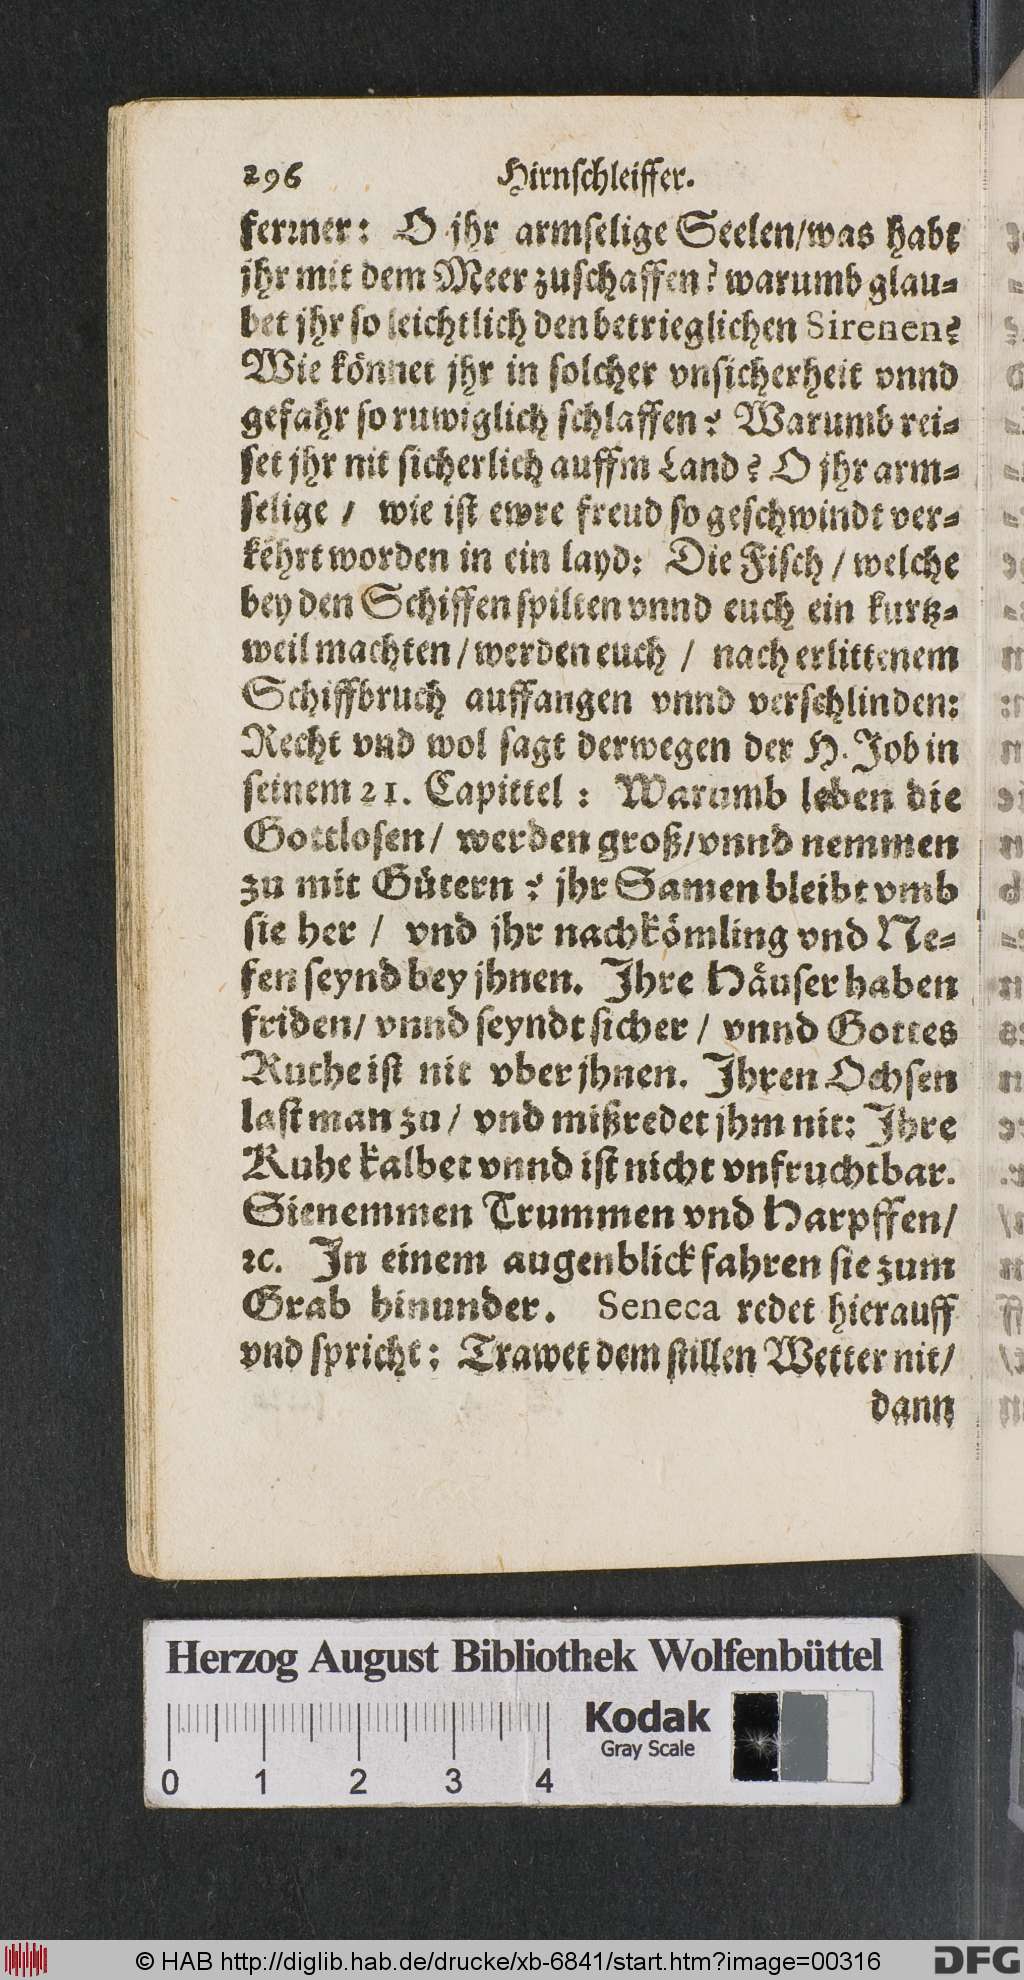 296 Hirnschleiffer.
ferꝛner: O jhr armselige Seelen/was habt
jhr mit dem Meer zuschaffen? warumb glau⸗
bet jhr so leichtlich den betrieglichen Sirenen?
Wie könnet jhr in solcher vnsicherheit vnnd
gefahr so ruwiglich schlaffen? Warumb rei⸗
set jhr nit sicherlich auffm Land? O jhr arm⸗
selige / wie ist ewre freud so geschwindt ver⸗
kehrt worden in ein layd: Die Fisch / welche
bey den Schiffen spilten vnnd euch ein kurtz⸗
weil machten / werden euch / nach erlittenem
Schiffbruch auffangen vnnd verschlinden:
Recht vnd wol sagt derwegen der H. Job in
seinem 21. Capittel : Warumb leben die
Gottlosen/ werden groß/vnnd nemmen
zu mit Gütern ? jhr Samen bleibt vmb
sie her / vnd jhr nachkömling vnd Ne⸗
fen seynd bey jhnen. Ihre Häuser haben
friden/ vnnd seyndt sicher / vnnd Gottes
Ruthe ist nit vber jhnen. Ihren Ochsen
last man zu / vnd mißredet jhm nit: Ihre
Kuhe kalbet vnnd ist nicht vnfruchtbar.
Sie nemmen Trummen vnd Harpffen/
ꝛc. In einem augenblick fahren sie zum
Grab hinunder. Seneca redet hierauff
vnd spricht: Trawet dem stillen Wetter nit/
dann
Herzog August Bibliothek Wolfenbüttel
Kodak
Gray Scale
0 1 2 3 4
© HAB http://diglib.hab.de/drucke/xb-6841/start.htm?image=00316
DFG